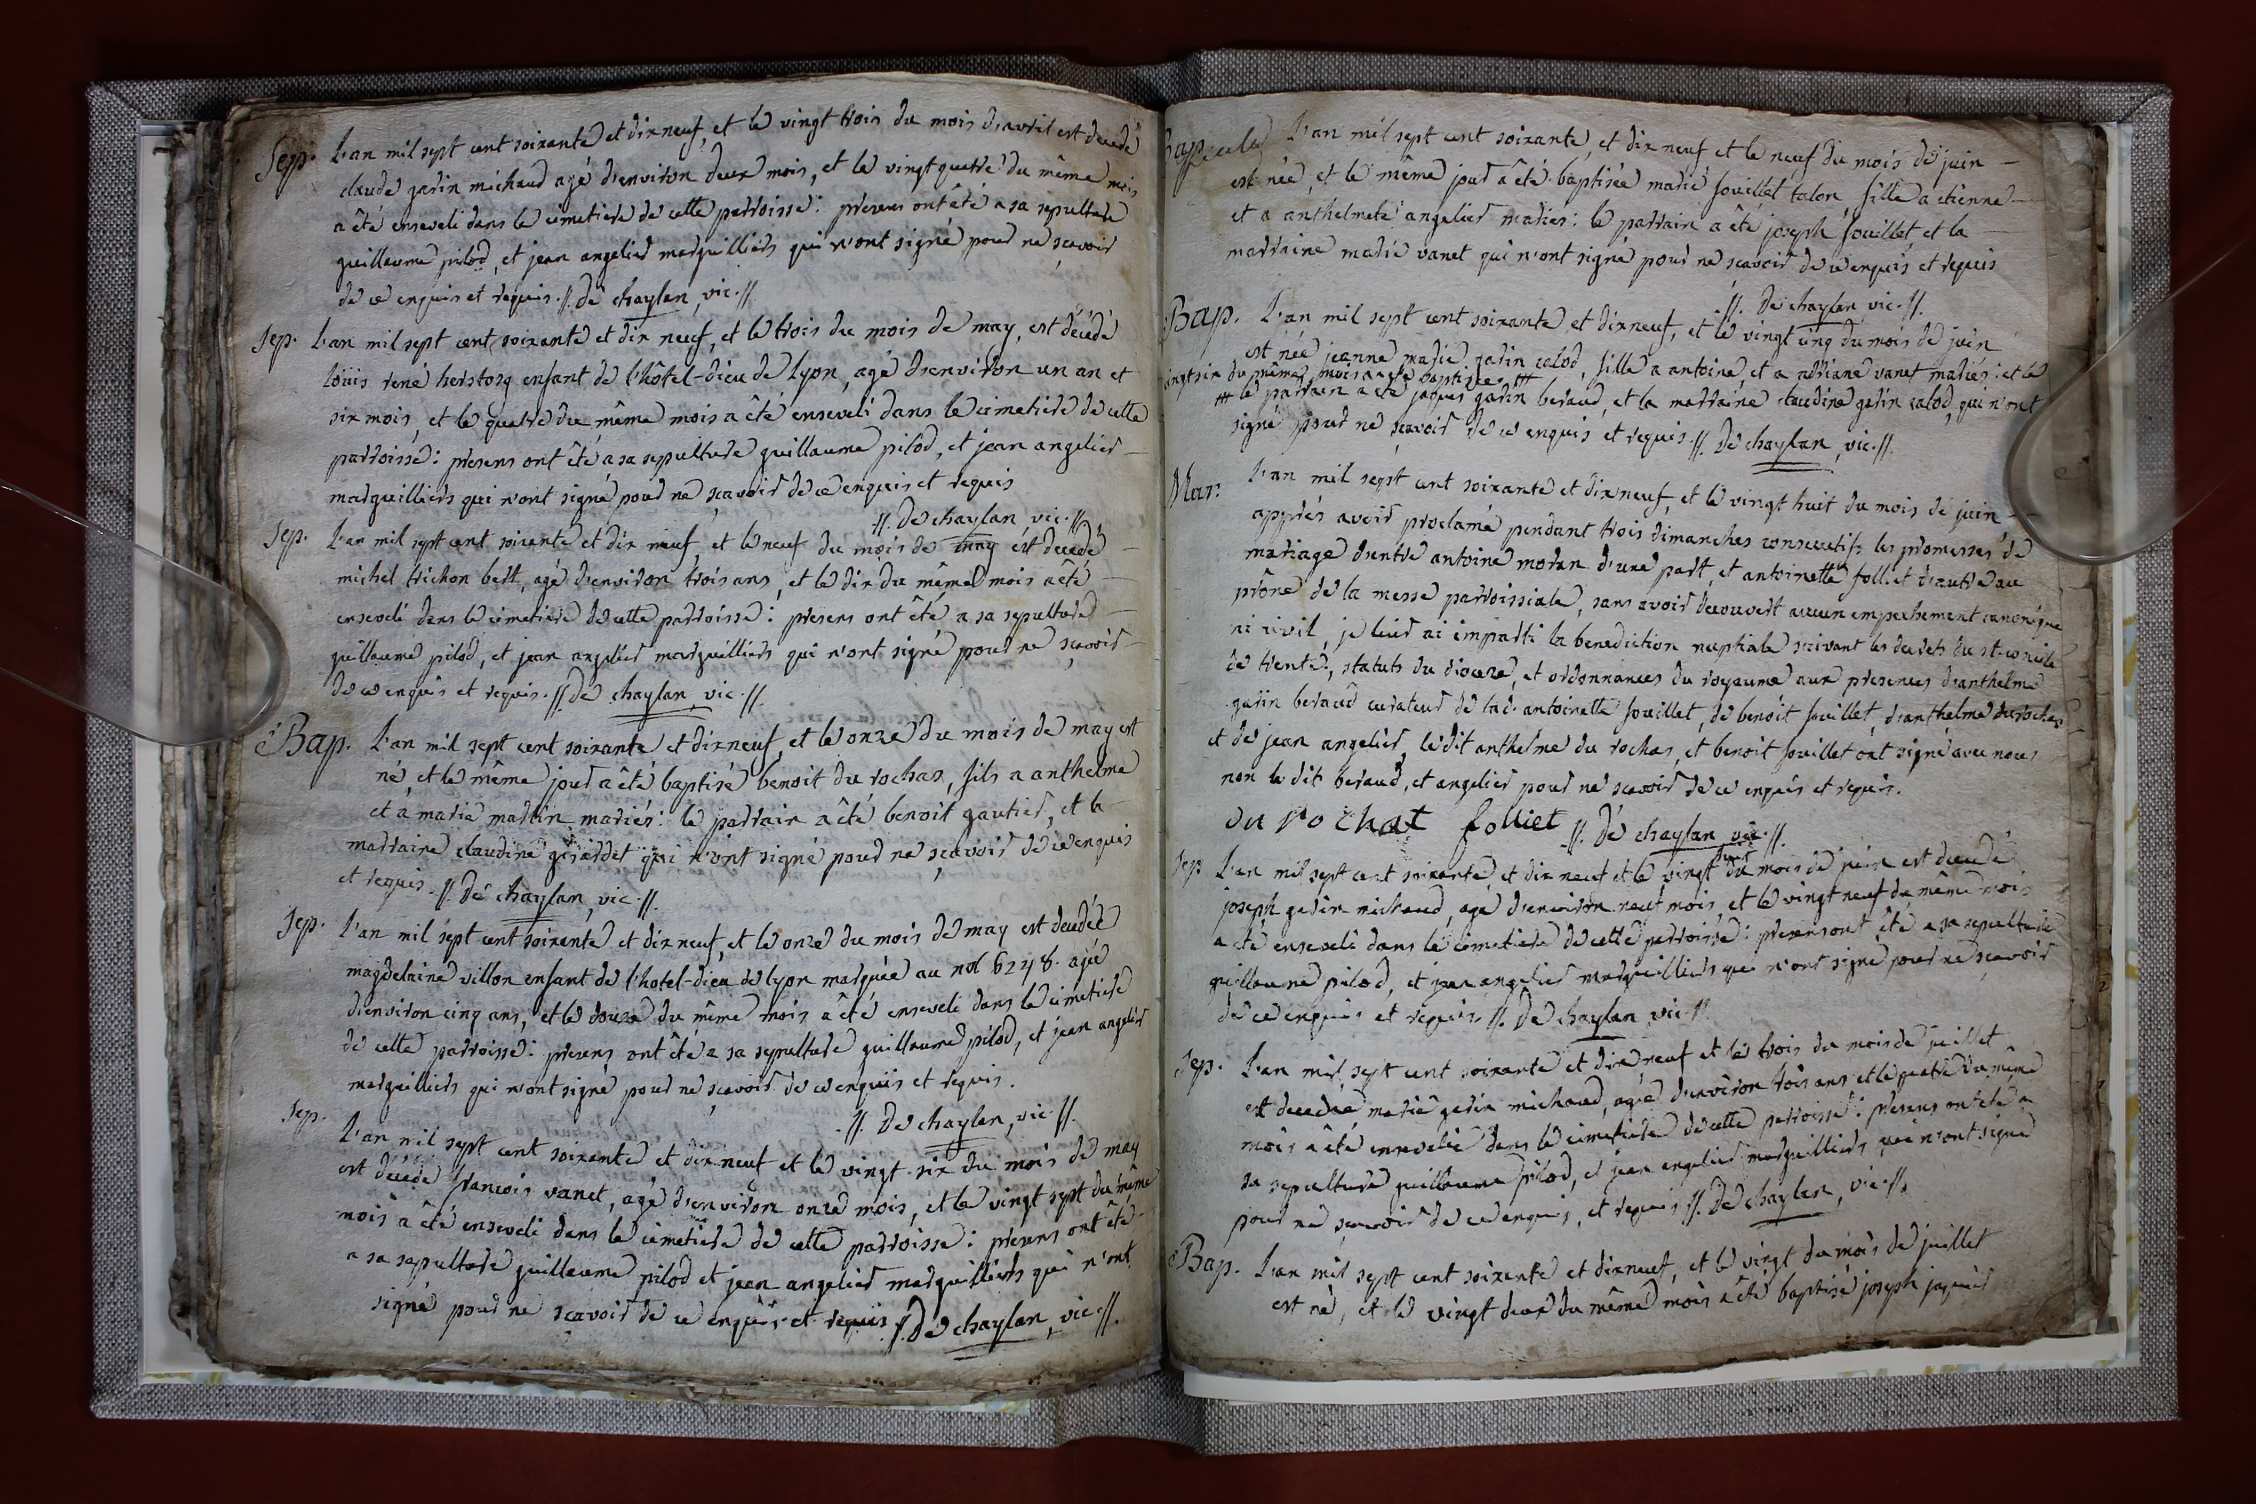 Sep. L'an mil sept cent soixante et dixneuf, et le vingt trois du mois d'avril est decedé
claude garin michaud agé d'environ deux mois, et le vingt quatre du même mois
a été enseveli dans le cimetiere de cette parroisse: presens ont été a sa sepulture
guillaume pilod, et jean angelier marguilliers qui n'ont signé pour ne sçavoir
de ce enquis et requis .//. De chaylan, vic .//.
Sep. L'an mil sept cent soixante et dix neuf, et le trois du mois de may, est décédé
loüis rené herstorg enfant de l'hôtel-dieu de Lyon, agé d'environ un an et
six mois, et le quatre du même mois a été enseveli dans le cimetiere de cette
parroisse: presens ont été a sa sepulture guillaume pilod, et jean angelier
marguilliers qui n'ont signé pour ne sçavoir de ce enquis et requis
.//. De chaylan, vic .//.
Sep. L'an mil sept cent soixante et dix neuf, et le neuf du mois de may est decedé
michel trichon bert, agé d'environ trois ans, et le dix du même mois a été
enseveli dans le cimetiere de cette parroisse: presens ont été a sa sepulture
guillaume pilod, et jean angelier marguilliers qui n'ont signé pour ne sçavoir
de ce enquis et requis .//. De chaylan, vic .//.
Bap. L'an mil sept cent soixante et dixneuf, et le onze du mois de may est
né et le même jour a été baptisé benoit du rochas, fils a anthelme
et a marie martin mariés: le parrain a été benoit gautier, et la
marraine claudine girardet qui n'ont signé pour ne sçavoir de ce enquis
et requis .//. De chaylan, vic .//.
Sep. L'an mil sept cent soixante et dixneuf, et le onze du mois de may est decedée
magdelaine villon enfant de l'hotel-dieu de lyon marquée au no 6248. agée
d'environ cinq ans, et le douze du même mois a été enseveli dans le cimetiere
de cette parroisse: presens ont été a sa sepulture guillaume pilod, et jean angelier
marguilliers qui n'ont signé pour ne sçavoir de ce enquis et requis.
.//. De chaylan, vic .//.
Sep. L'an mil sept cent soixante et dixneuf et le vingt six du mois de may
est décédé francois vanet, agé d'environ onze mois, et le vingt sept du même
mois a été enseveli dans le cimetiere de cette parroisse: presens ont été
a sa sepulture guillaume pilod et jean angelier marguilliers qui n'ont
signé pour ne scavoir de ce enquis et requis .//. De chaylan, vic .//.
Bap. L'an mil sept cent soixante, et dix neuf et le neuf du mois de juin
est née, et le même jour a été baptisée marie fouillet talon fille a etienne
et a anthelmete angelier mariés: le parrain a été joseph fouillet, et la
marraine marie vanet qui n'ont signé pour ne scavoir de ce enquis et requis
.//. De chaylan vic .//.
Bap. L'an mil sept cent soixante et dixneuf, et le vingt cinq du mois de juin
est née jeanne marie garin calod, fille a antoine, et a adriane vanet mariés: et le
vingt six du même mois a été baptisée ##
## le parrain a été jaques garin beraud, et la marraine claudine garin calod, qui n'ont
signé pour ne sçavoir de ce enquis et requis .//. De chaylan, vic .//.
Mar: L'an mil sept cent soixante et dixneuf, et le vingt huit du mois de juin
apprés avoir proclamé pendant trois dimanches consecutifs les promesses de
mariage d'entre antoine moran d'une part, et antoinette folliet d'autre au
prône de la messe parroissiale, sans avoir decouvert aucun empechement canonique
ni civil, je leur ai imparti la benediction nuptiale suivant les decrets du st. concile
de trente, statuts du diocèze, et ordonnances du royaume aux presences d'anthelme
garin beraud curateur de lad. antoinette fouillet, de benoit fouillet d'anthelme durochas
et de jean angelier, ledit anthelme du rochas, et benoit fouillet ont signé avec nous
non le dit beraud, et angelier pour ne scavoir de ce enquis et requis.
du rochat folliet .//. De chaylan, vic .//.
Sep. L'an mil sept cent soixante, et dix neuf et le vingt huit du mois de juin est decedé
joseph garin michaud, agé d'environ neuf mois, et le vingt neuf du même mois
a été enseveli dans le cimetiere de cette parroisse: presens ont été a sa sepulture
guillaume pilod, et jean angelier marguilliers qui n'ont signé pour ne sçavoir
de ce enquis et requis .//. De chaylan vic .//.
Sep. L'an mil sept cent soixante et dix neuf et le trois du mois de juillet
est decedée marie garin michaud, agée d'environ trois ans et le quatre du même
mois a été ensevelie dans le cimetiere de cette parroisse: presens ont été a
sa sepulture guillaume pilod, et jean angelier marguilliers qui n'ont signé
pour ne sçavoir de ce enquis, et requis .//. De chaylan, vic .//.
Bap. L'an mil sept cent soixante et dixneuf, et le vingt du mois de juillet
est né, et le vingt deux du même mois a été baptisé joseph jaques